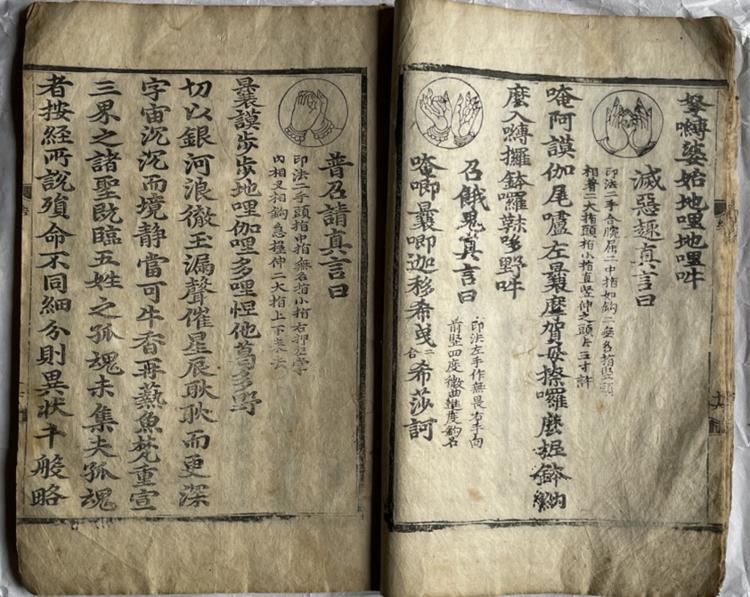 拏嚩婆始地哩地哩吽
滅惡趣真言曰
印法二手合腕屈二中指如鈎二無名指竪頭
相著二大指頭指小指直竪伸之頭去三寸許
唵阿謨伽尾嚧左曩麼賀母捺囉麼抳鉢納
麼入嚩攞鉢囉韈哆野吽
召餓鬼真言曰
印法左手作無畏右手向
前竪四度微曲進度鈎召
唵唧曩唧迦移希曳二合希莎訶
普召請真言曰
印法二手頭指中指無名指小指右押左
內相叉相鈎急握伸二大指上下來去
曩謨步步地哩伽哩多哩怛他葛多野
切以銀河浪徹玉漏聲催星辰耿耿而更深
宇宙沉沉而境靜當可牛香再爇魚梵重宣
三界之諸聖既臨五姓之孤魂未集夫孤魂
者按經所說殞命不同細分則異狀千般略